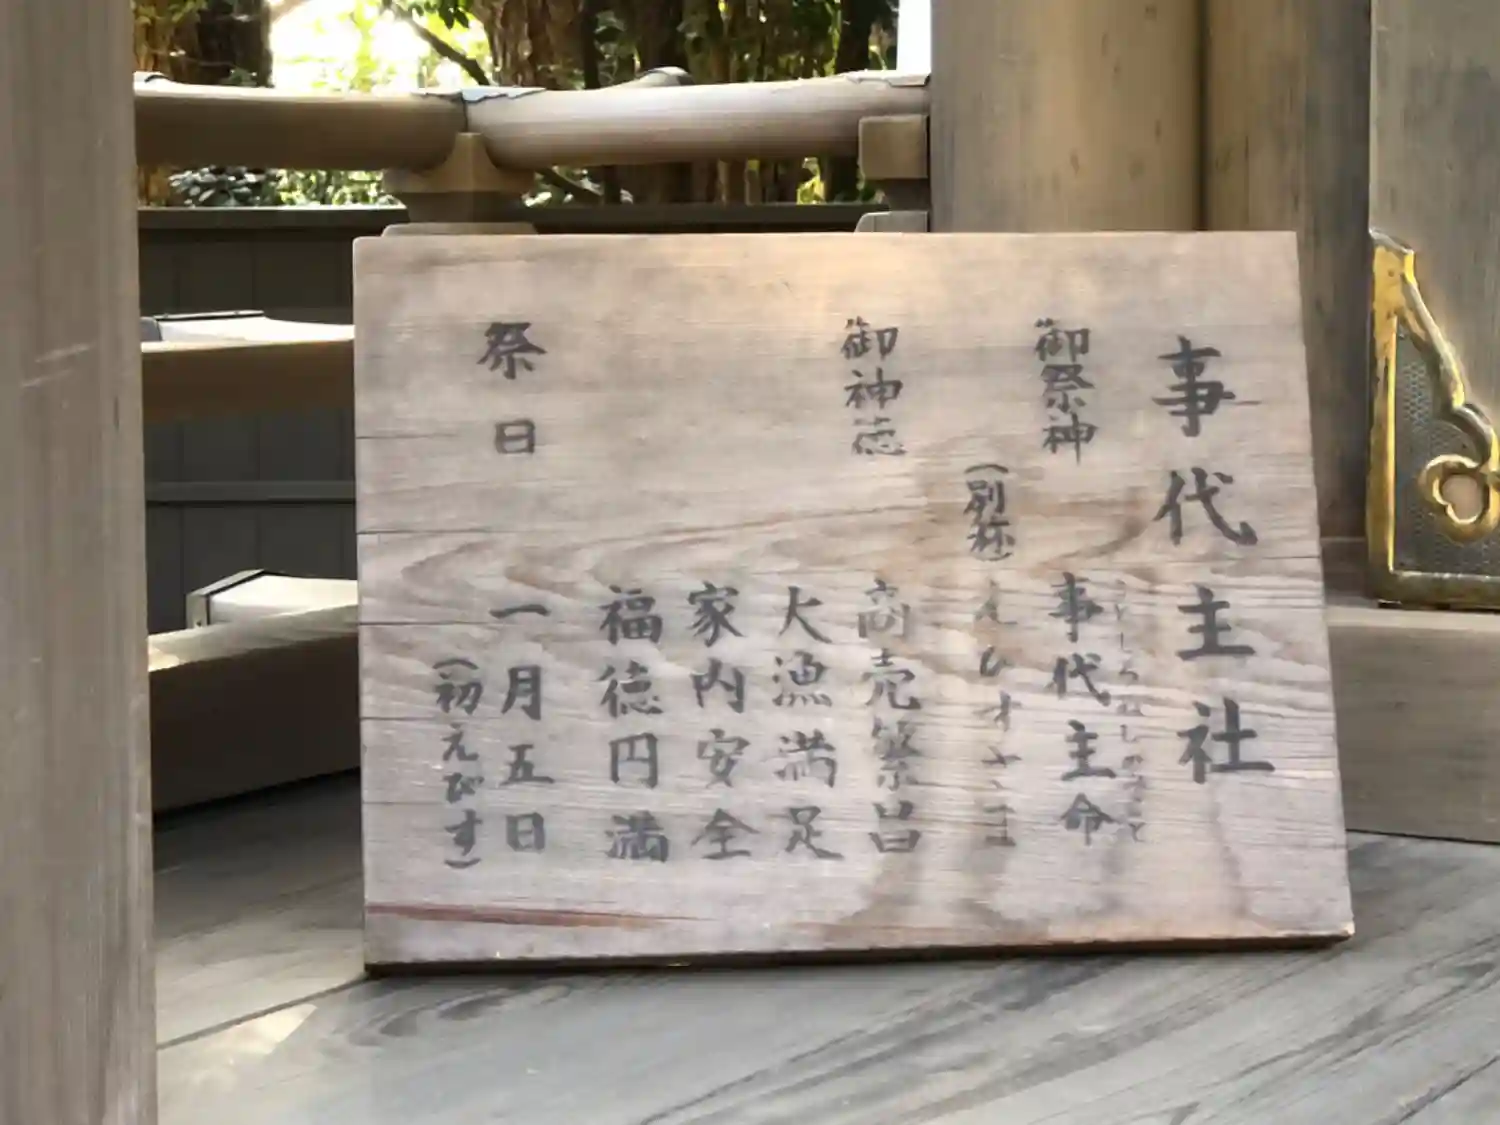 事代主社
ことしろぬしのみこと
御祭神 事代主命
(別称) えびすさま
御神徳 商売繁昌
大漁満足
家内安全
福徳円満
祭日 一月五日
(初えびす)